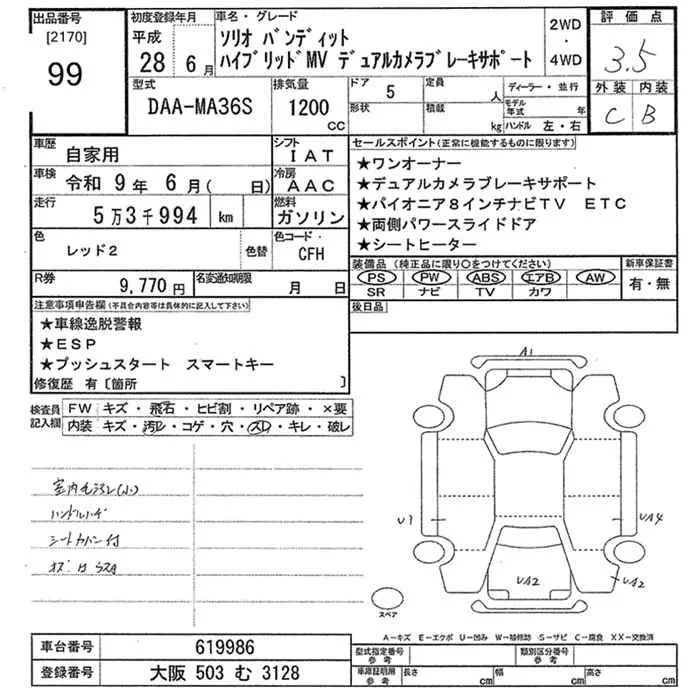 出品番号
[2170]
99
初度登録年月
平成
28年 6月
車名・グレード
ソリオ バンディット
ハイブリッドMV デュアルカメラブレーキサポート
2WD
・
4WD
評価点
3.5
外装 内装
C B
型式
DAA-MA36S
排気量
1200
CC
ドア
5
形状
定員
人
積載
kg
ディーラー・並行
モデル年式
年
ハンドル 左・右
車歴
自家用
シフト
IAT
車検
令和 9年 6月( 日)
冷房
AAC
走行
5万3千994 km
燃料
ガソリン
色
レッド2
色替
色コード
CFH
R券
9,770円
名変通知期限
月 日
セールスポイント(正常に機能するものに限ります)
★ワンオーナー
★デュアルカメラブレーキサポート
★パイオニア8インチナビTV ETC
★両側パワースライドドア
★シートヒーター
装備品(純正品に限り○をつけてください)
PS PW ABS エアB AW
SR ナビ TV カワ
新車保証書
有・無
後日品
注意事項申告欄(不具合内容等は具体的に記入して下さい)
★車線逸脱警報
★ESP
★プッシュスタート スマートキー
修復歴 有〔箇所 〕
検査員
記入欄
FW キズ・飛石・ヒビ割・リペア跡・×要
内装 キズ・汚レ・コゲ・穴・スレ・キレ・破レ
ハンドルハゲ
シートカバー付
A1
U1
UA4
UA2
UA2
スペア
A-キズ E-エクボ U-凹み W-補修跡 S-サビ C-腐食 XX-交換済
車台番号
619986
登録番号
大阪 503 む 3128
型式指定番号
参考
類別区分番号
参考
車庫証明用
参考
長さ cm
幅 cm
高さ cm